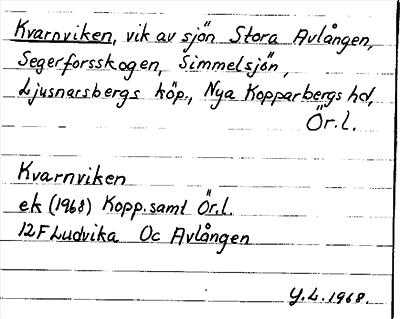 Kvarnviken, vik av sjön Stora Avlången,
Segerforsskogen, Simmelsjön,
Ljusnarsbergs köp., Nya Kopparbergs hd,
Ör.l.
Kvarnviken
ek (1968) Kopp.samt Ör.l.
12F Ludvika Oc Avlången
Y.L.1968.